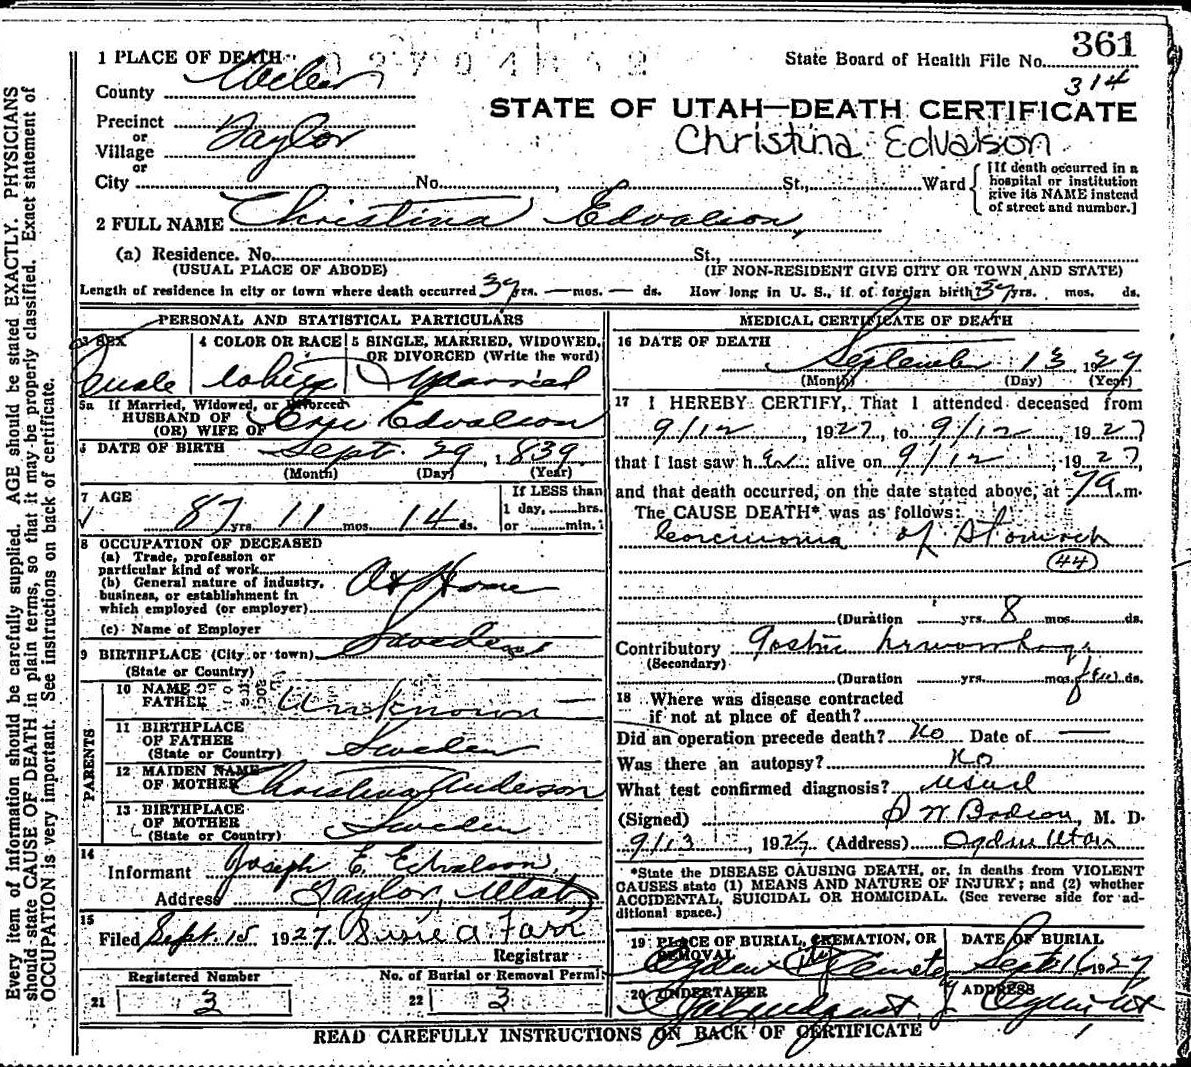 361
State Board of Health File No.
314
1 PLACE OF DEATH
County Weber
STATE OF UTAH—DEATH CERTIFICATE
Christina Edvalson
Precinct
or
Village Taylor
or
City No. St., Ward
[If death occurred in a
hospital or institution
give its NAME instead
of street and number.]
2 FULL NAME Christina Edvalson,
(a) Residence. No. St.,
(USUAL PLACE OF ABODE) (IF NON-RESIDENT GIVE CITY OR TOWN AND STATE)
Length of residence in city or town where death occurred yrs. — mos. — ds. How long in U. S., if of foreign birth? yrs. mos. ds.
PERSONAL AND STATISTICAL PARTICULARS
3 SEX 4 COLOR OR RACE 5 SINGLE, MARRIED, WIDOWED,
OR DIVORCED (Write the word)
white Married
5a If Married, Widowed, or Divorced
HUSBAND OF
(OR) WIFE OF Edvalson
6 DATE OF BIRTH Sept. 29, 1839
(Month) (Day) (Year)
7 AGE
87 yrs. 11 mos. 14 ds.
If LESS than
1 day, hrs.
or min.
8 OCCUPATION OF DECEASED
(a) Trade, profession or
particular kind of work
(b) General nature of industry,
business, or establishment in
which employed (or employer)
At Home
(c) Name of Employer
9 BIRTHPLACE (City or town) Sweden
(State or Country)
PARENTS
10 NAME OF
FATHER Unknown
11 BIRTHPLACE
OF FATHER Sweden
(State or Country)
12 MAIDEN NAME
OF MOTHER Christina Anderson
13 BIRTHPLACE
OF MOTHER Sweden
(State or Country)
14
Informant Joseph E. Edvalson,
Address Taylor, Utah
15
Filed Sept. 15 1927. Susie A Farr
Registrar
Registered Number No. of Burial or Removal Permit
21 3 22 3
MEDICAL CERTIFICATE OF DEATH
16 DATE OF DEATH
September 13 1927
(Month) (Day) (Year)
17 I HEREBY CERTIFY, That I attended deceased from
9/12, 1927, to 9/12, 1927
that I last saw her alive on 9/12, 1927,
and that death occurred, on the date stated above, at 7 a.m.
The CAUSE DEATH* was as follows:
Carcinoma of Stomach
44
(Duration yrs. 8 mos. ds.
Contributory Gastric hemorrhage
(Secondary)
(Duration yrs. mos. few ds.
18 Where was disease contracted
if not at place of death?
Did an operation precede death? No Date of —
Was there an autopsy? No
What test confirmed diagnosis? usual
(Signed) M. D.
9/13, 1927. (Address) Ogden Utah
*State the DISEASE CAUSING DEATH, or, in deaths from VIOLENT
CAUSES state (1) MEANS AND NATURE OF INJURY; and (2) whether
ACCIDENTAL, SUICIDAL OR HOMICIDAL. (See reverse side for ad-
ditional space.)
19 PLACE OF BURIAL, CREMATION, OR
REMOVAL
Ogden City Cemetery
DATE OF BURIAL
Sept 16 1927
20 UNDERTAKER ADDRESS
Ogden, Ut
READ CAREFULLY INSTRUCTIONS ON BACK OF CERTIFICATE
Every item of information should be carefully supplied. AGE should be stated EXACTLY. PHYSICIANS
should state CAUSE OF DEATH in plain terms, so that it may be properly classified. Exact statement of
OCCUPATION is very important. See instructions on back of certificate.